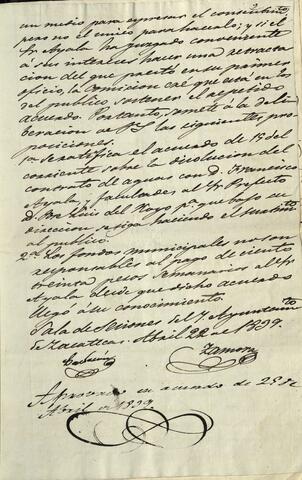 un medio para espresar el consentimto
pero no el unico para hacerlo; y si el
Sr Ayala ha juzgado conveniente
á sus intereses hacer una retracta
cion del que prestó en su primer
oficio, la Comision cré que está en los
del publico, sostener el repetido
acuerdo. Por tanto, somete á la deli-
beracion de las siguientes, pro-
posiciones.
1a Se ratifica el acuerdo de 15 del
corriente sobre la disolucion del
contrato de aguas con D. Francisco
Ayala, y facultades al Sr Prefecto
D. José Luis del Hoyo pa que bajo su
direccion se siga haciendo el
al publico.
2a Los fondos municipales no son
responsables al pago de ciento
treinta pesos semanarios al Sr
Ayala desde que dicho acuerdo
llegó á su conocimiento.
Sala de Sesiones del Y. Ayuntamto
de Zacatecas. Abril 22 de 1839.
Zamora
Aprovado en acuerdo de 25 de
Abril de 1839